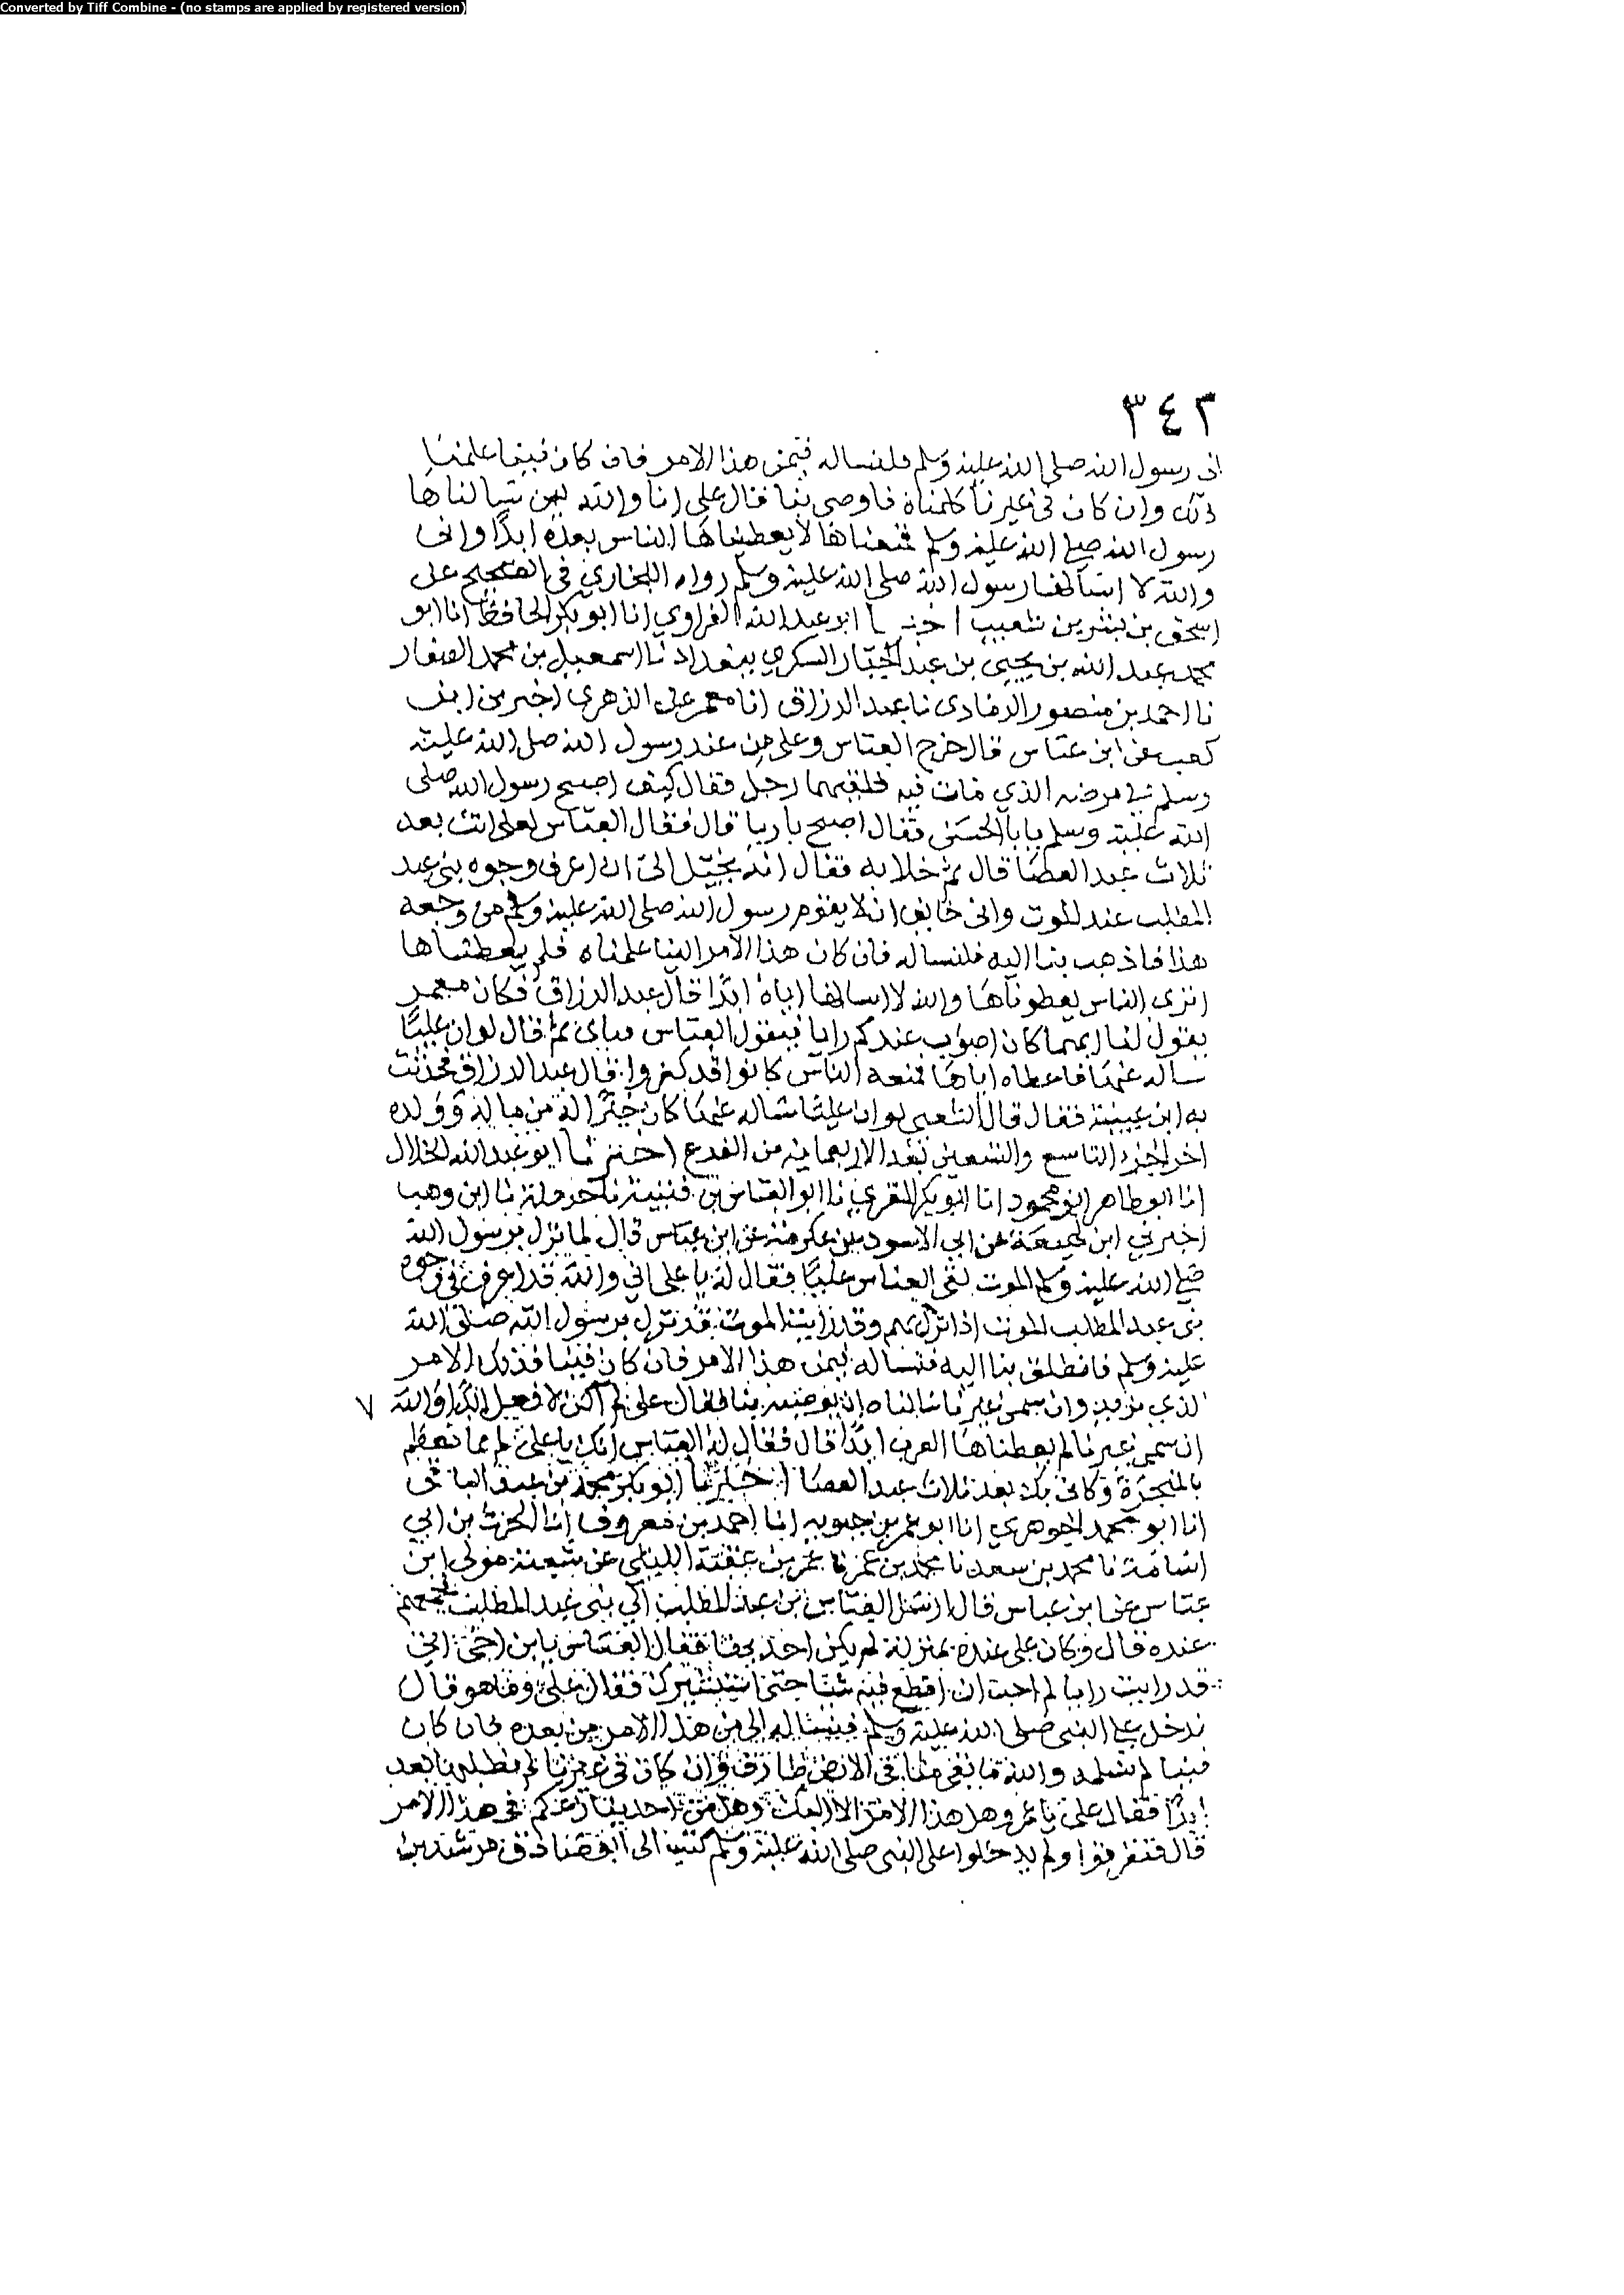 Converted by Tiff Combine - (no stamps are applied by registered version)
٣٤٢
الى رسول الله صلى الله عليه وسلم فلنساله فيمن هذا الامر فان كان فينا علمنا
ذلك وان كان في غيرنا كلمناه فاوصى بنا فقال علي انا والله لئن سالناها
رسول الله صلى الله عليه وسلم فمنعناها لا يعطيناها الناس بعده ابدا واني
والله لا اسألها رسول الله صلى الله عليه وسلم رواه البخاري في الصحيح على
اسحق بن بشر بن شعيب اخبرنا ابو عبد الله الفراوي انا ابو بكر الحافظ انا ابو
محمد عبد الله بن يحيى بن عبد الجبار السكري ببغداد نا اسمعيل بن محمد الصفار
نا احمد بن منصور الرمادى نا عبد الرزاق انا معمر على الزهري اخبرني ابن
كعب عن ابن عباس قال خرج العباس وعلي من عند رسول الله صلى الله عليه
وسلم في مرضه الذي مات فيه فلقيهما رجل فقال كيف اصبح رسول الله صلى
الله عليه وسلم يابا الحسن فقال اصبح باريا قال فقال العباس لعلي انت بعد
ثلاث عبد العصا قال ثم خلا به فقال انه يخيل الي ان اعرف وجوه بني عبد
المطلب عند الموت واني خايف ان لا يقوم رسول الله صلى الله عليه وسلم من وجعه
هذا فاذهب بنا اليه فلنساله فان كان هذا الامر الينا علمناه فلم يعطناها
انرى الناس يعطوناها والله لا اسالها اياه ابدا قال عبد الرزاق فكان معمر
يقول لنا ايهما كان اصوب عندكم رايا فيقول العباس فيابى ثم قال لو ان عليا
ساله عنها فاعطاه اياها فمنعه الناس كانوا قد كفروا قال عبد الرزاق فحدثت
به ابن عيينة فقال قال الشعبي لو ان عليا ساله عنها كان خيرا له من ماله وولده
اخر الجزء التاسع والتسعين بعد الاربعمايه من الفرع اخبرنا ابو عبد الله الخلال
انا ابو طاهر ابن محمود انا ابو بكر المقري نا ابو العباس بن قتيبة نا حرملة نا ابن وهب
اخبرني ابن لهيعة عن ابي الاسود عن عكرمة عن ابن عباس قال لما نزل برسول الله
صلى الله عليه وسلم الموت لقي العباس عليا فقال له يا علي اني والله قد اعرف في وجوه
بني عبد المطلب الموت اذا نزل بهم وقد رايت الموت قد نزل برسول الله صلى الله
عليه وسلم فانطلق بنا اليه فنساله فيمن هذا الامر فان كان فينا فذلك الامر
الذي نريد وان سمى غيرنا سالناه ان يوصيه بنا فقال علي لم اكن لافعل ابدا والله ٧
ان سمى غيرنا لم يعطناها العرب ابدا قال فقال له العباس انك يا علي
وكاني بك بعد ثلاث عبد العصا اخبرنا ابو بكر محمد بن عبد الباقي
انا ابو محمد الجوهري انا ابو عمر بن حيويه انا احمد بن معروف انا الحرث بن ابي
اسامة نا محمد بن سعد نا محمد بن عمر نا عمر بن عقبة الليثي عن شعبة مولى ابن
عباس عن ابن عباس قال ارسل العباس بن عبد المطلب الى بني عبد المطلب فجمعهم
عنده قال وكان علي عنده بمنزلة لم يكن احد بها فقال العباس يا ابن اخي اني
قد رايت رايا لم احب ان اقطع فيه شيا حتى استشيرك فقال علي وما هو قال
ندخل على النبي صلى الله عليه وسلم فنساله الى من هذا الامر من بعده فان كان
فينا لم نسلمه والله ما بقي منا في الارض طارف وان كان في غيرنا لم نطلبها بعد
ابدا فقال علي يا عم وهل هذا الامر الا اليك وهل من احد ينازعكم في هذا الامر
قال فتفرقوا ولم يدخلوا على النبي صلى الله عليه وسلم كتب الى